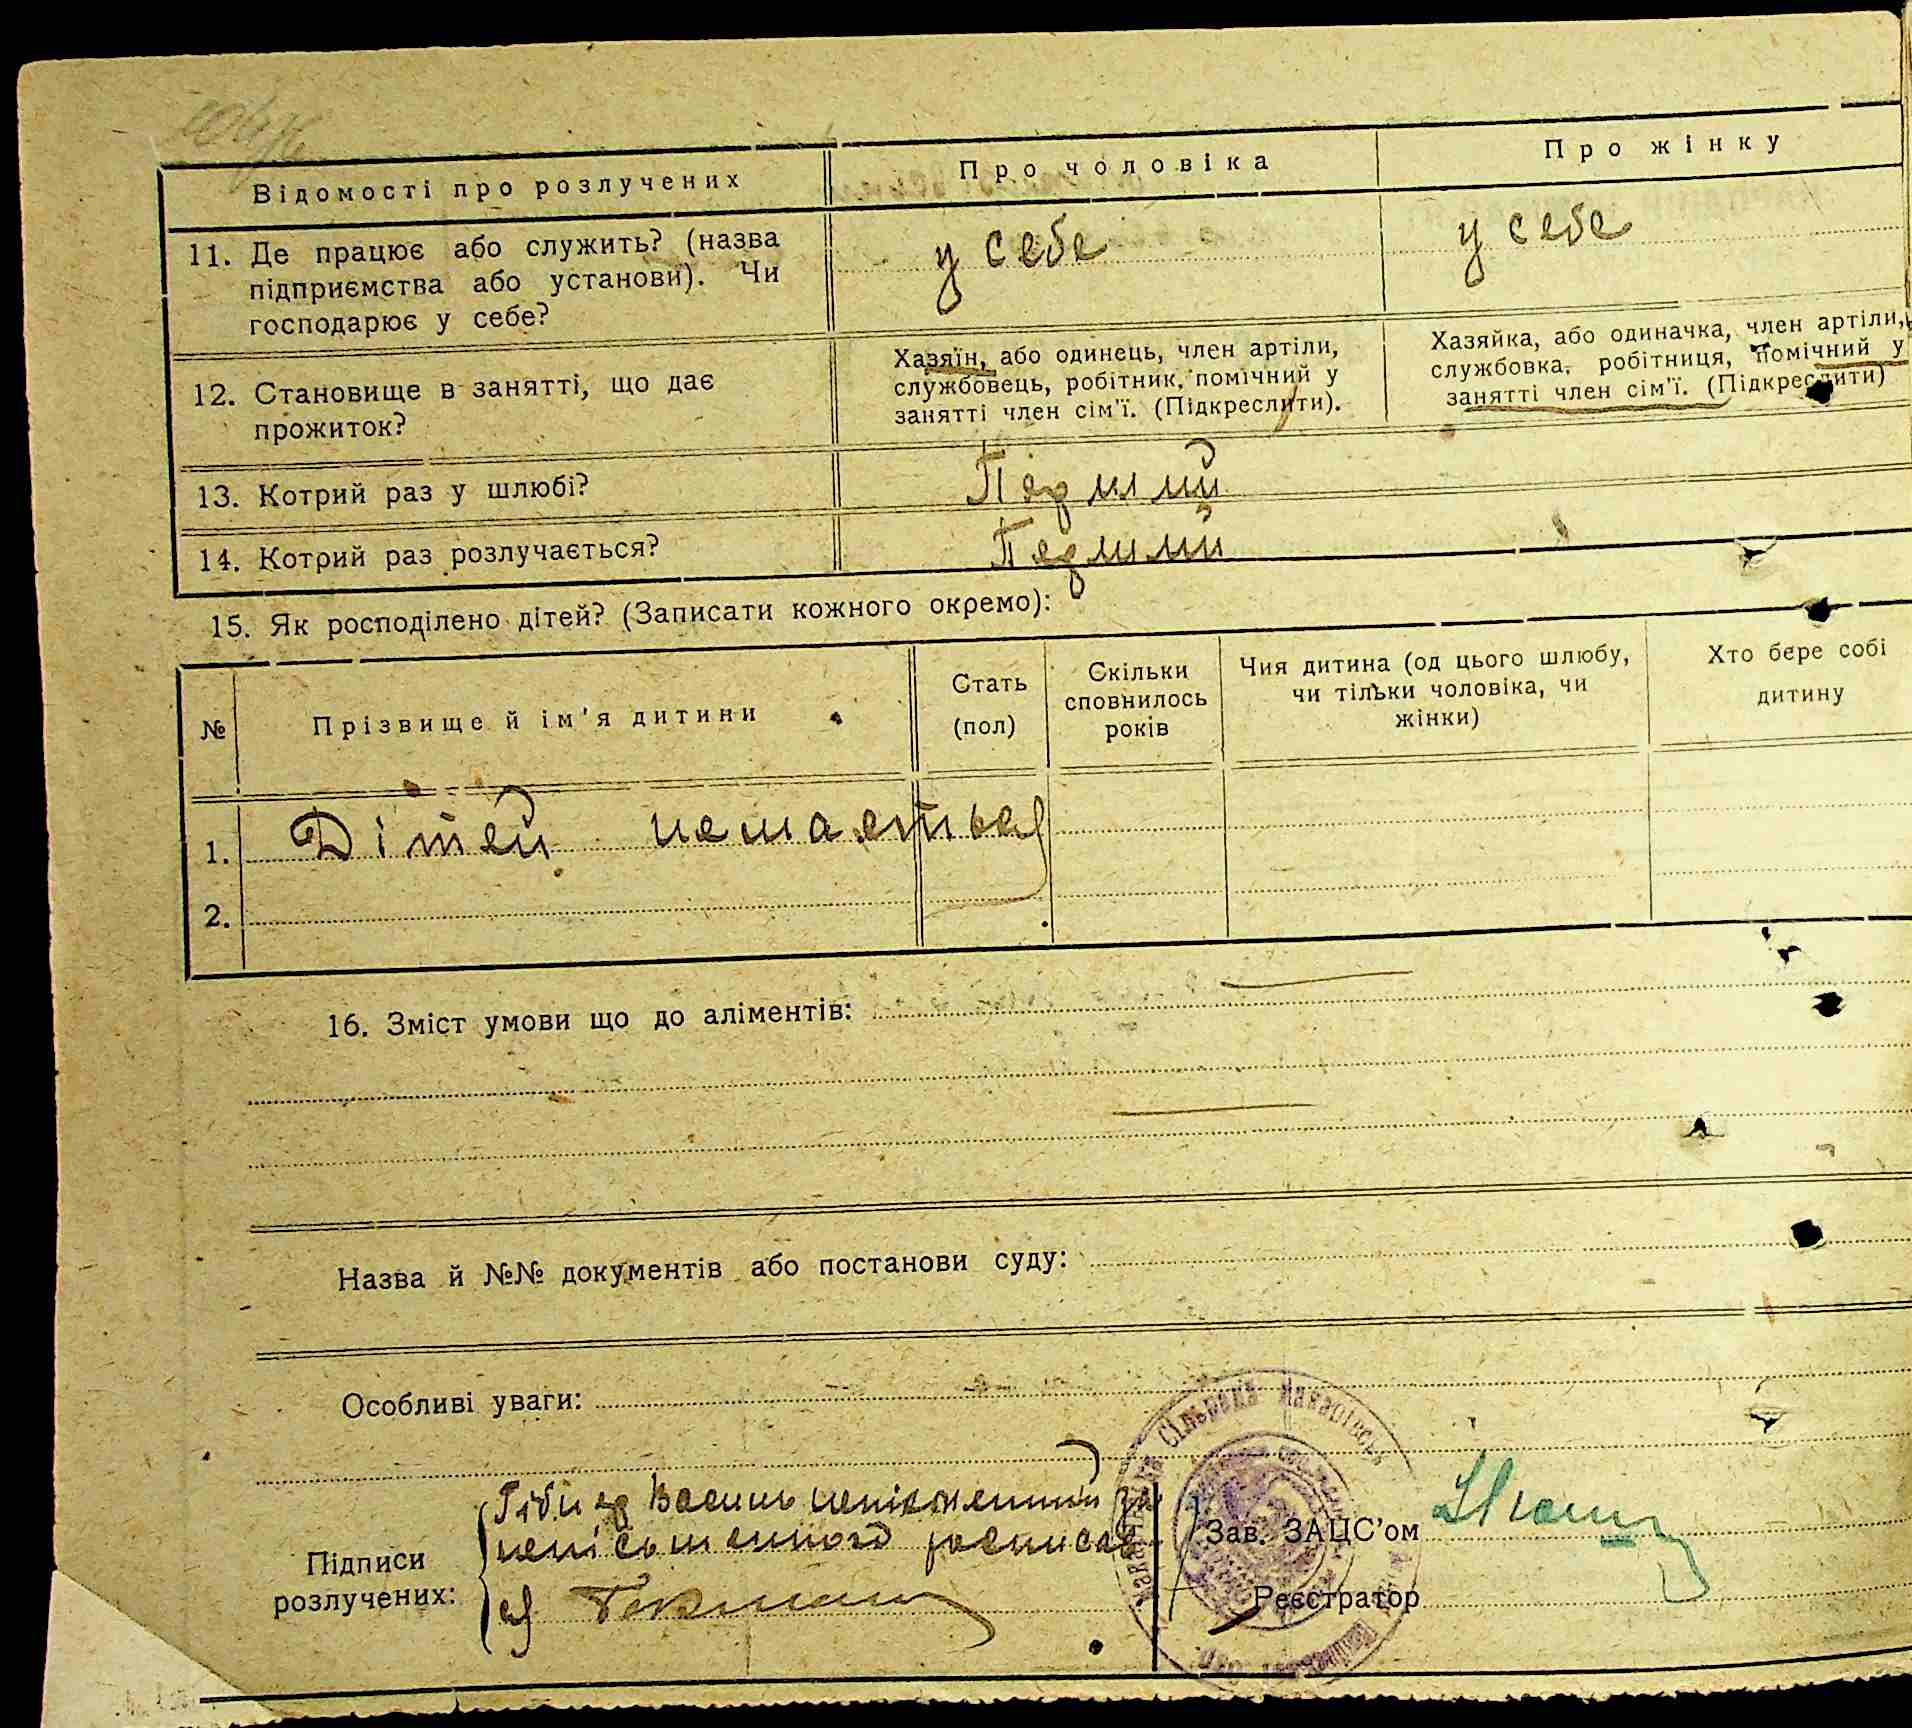 Відомості про розлучених
Про чоловіка
Про жінку
11. Де працює або служить? (назва
підприємства або установи). Чи
господарює у себе?
у себе
у себе
12. Становище в занятті, що дає
прожиток?
Хазяїн, або одинець, член артіли,
службовець, робітник, помічний у
занятті член сім'ї. (Підкреслити).
Хазяйка, або одиначка, член артіли,
службовка, робітниця, помічний у
занятті член сім'ї. (Підкреслити)
13. Котрий раз у шлюбі?
Перший
14. Котрий раз розлучається?
Перший
15. Як росподілено дітей? (Записати кожного окремо):
№
Прізвище й ім'я дитини
Стать
(пол)
Скільки
сповнилось
років
Чия дитина (од цього шлюбу,
чи тільки чоловіка, чи
жінки)
Хто бере собі
дитину
1. Дітей немається
2.
16. Зміст умови що до аліментів:
Назва й №№ документів або постанови суду:
Особливі уваги:
Підписи
розлучених:
Василь неписьменний За
неписьменного росписав
Зав. ЗАЦС'ом
Реєстратор
Сільрада Макарівськ